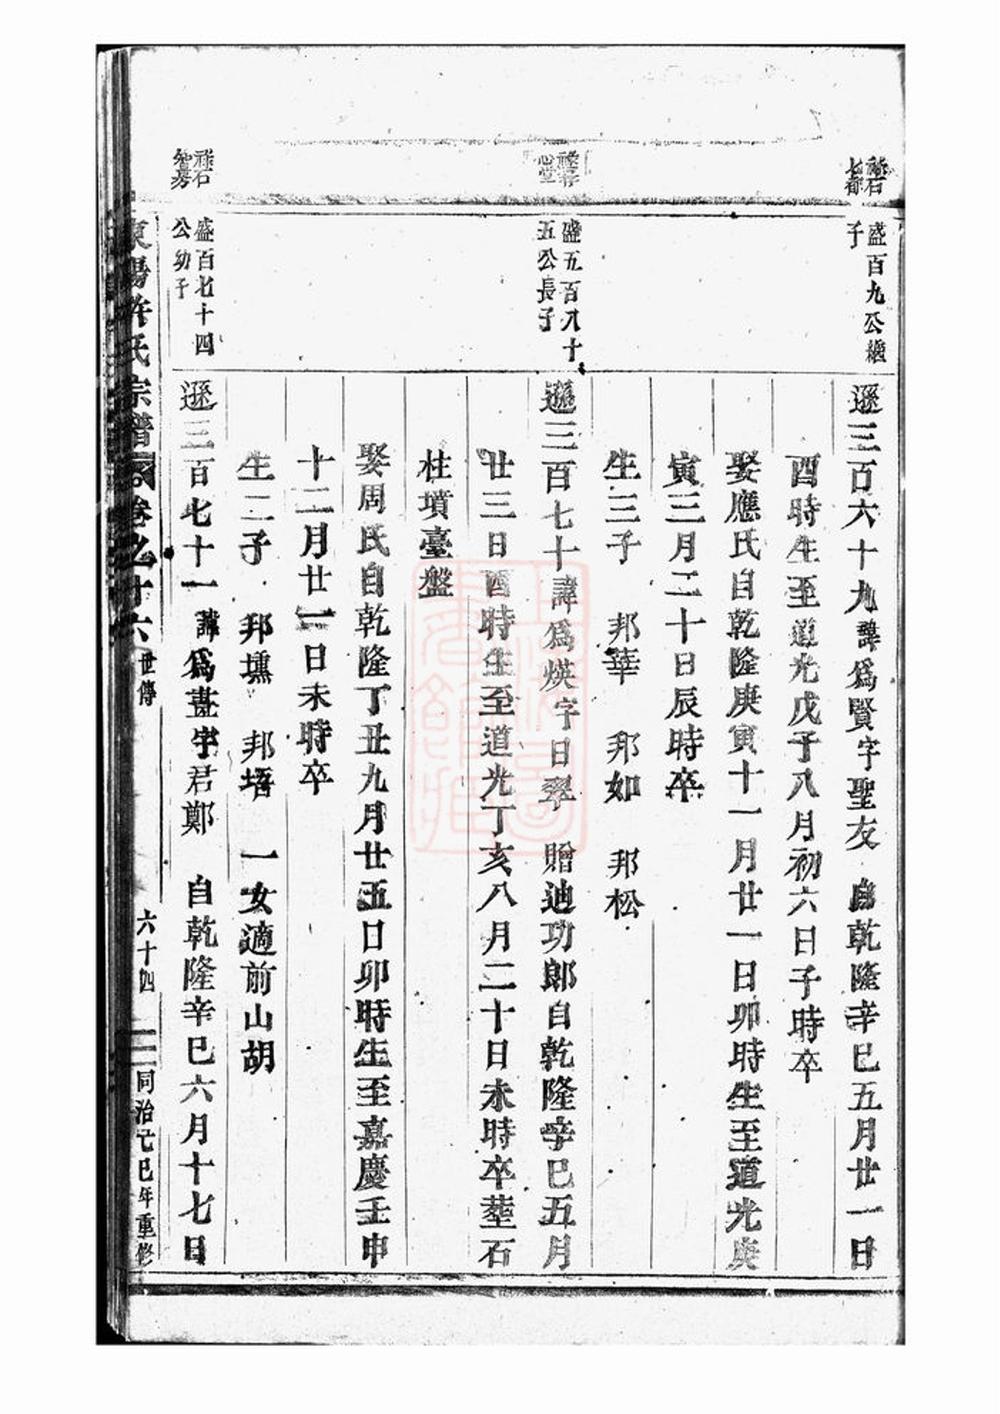 祿石
七都
盛百九公繼
子
遜三百六十九諱爲賢字聖友 自乾隆辛巳五月廿一日
酉時生至道光戊子八月初六日子時卒
娶應氏自乾隆庚寅十一月廿一日卯時生至道光庚
寅三月二十日辰時卒
生三子 邦華 邦如 邦松
心堂
盛五百八十
五公長子
遜三百七十諱爲煐字日翠 贈迪功郎自乾隆辛巳五月
廿三日酉時生至道光丁亥八月二十日未時卒塟石
柱墳臺盤
娶周氏自乾隆丁丑九月廿五日卯時生至嘉慶壬申
十二月廿二日未時卒
生二子 邦壎 邦堦 一女適前山胡
祿石
盛百七十四
公幼子
遜三百七十一諱爲晝字君鄭 自乾隆辛巳六月十七日
東陽許氏宗譜 卷之十六 世傳 六十四 同治己巳年重修